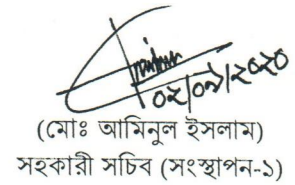 ০২/০৯/২০২০
(মোঃ আমিনুল ইসলাম)
সহকারী সচিব (সংস্থাপন-১)